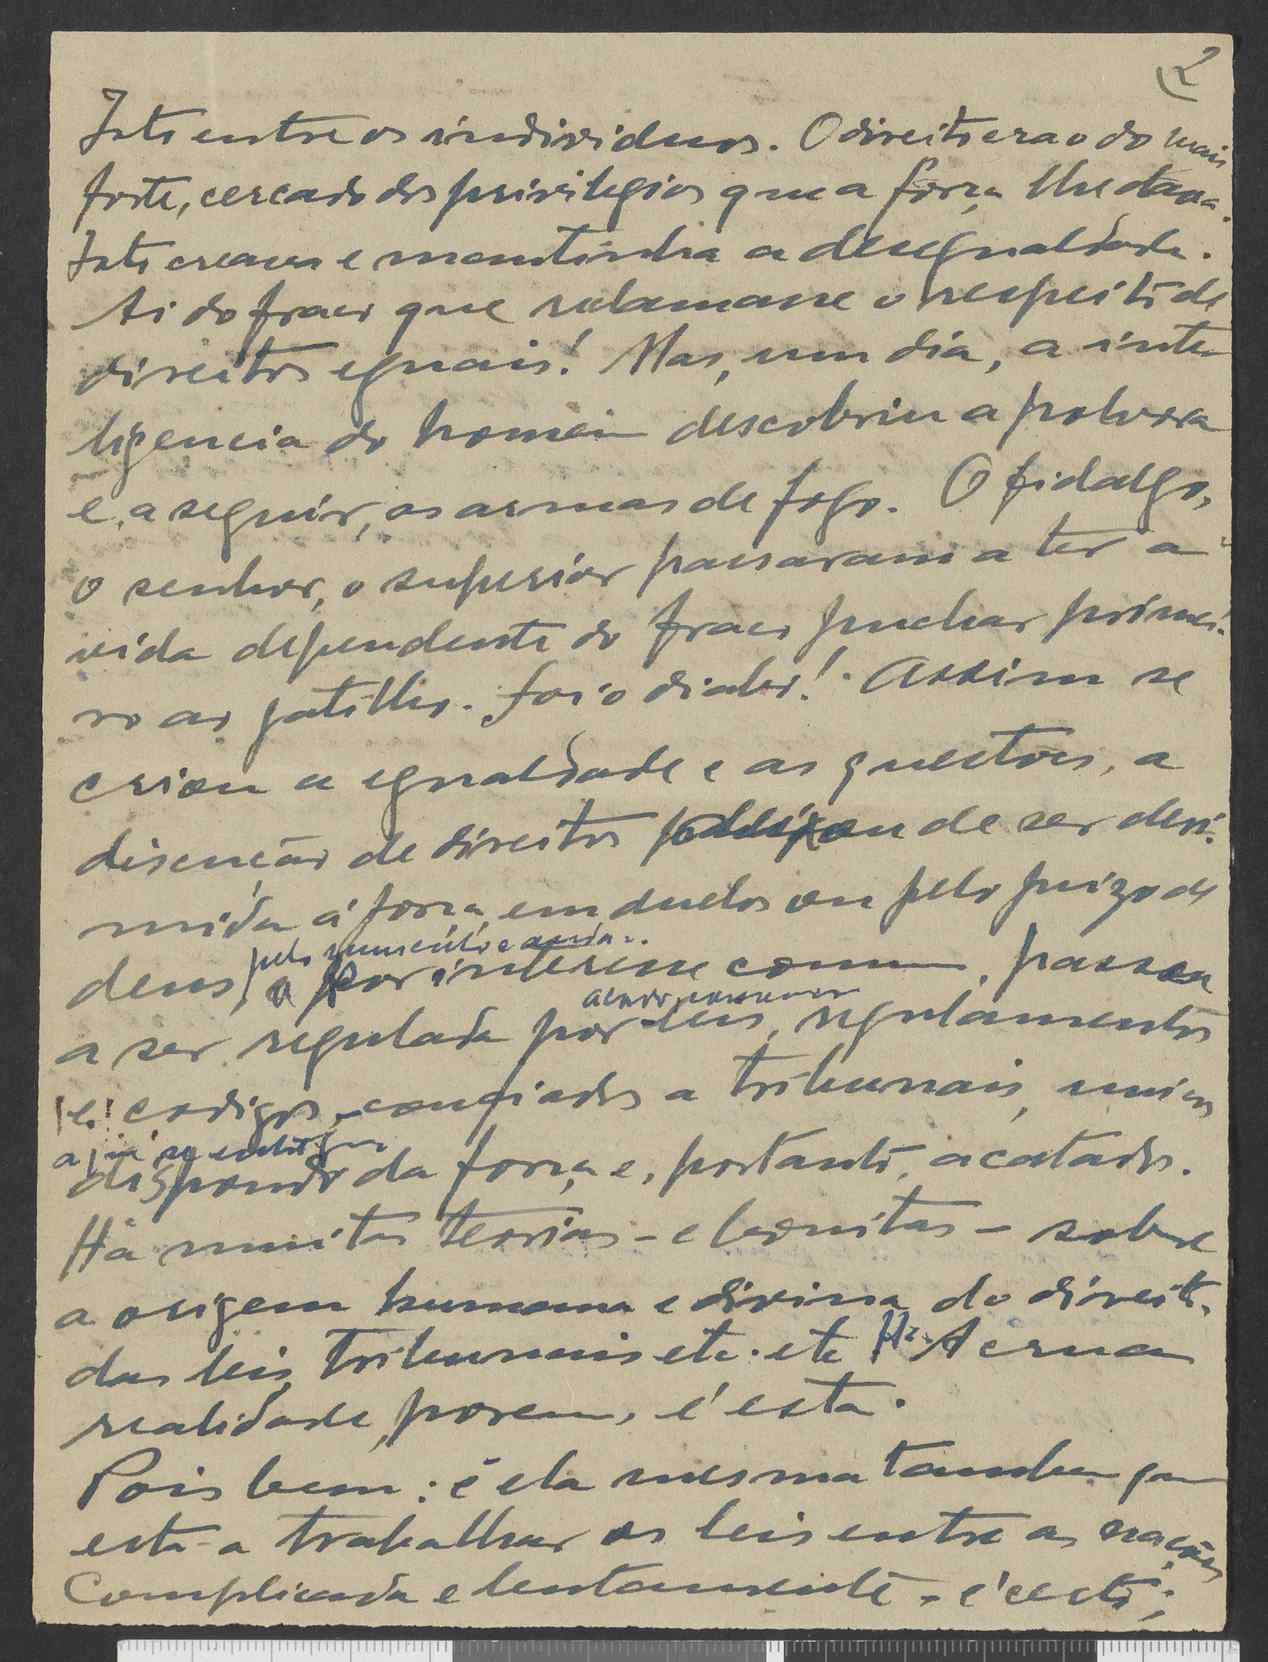 2
Isto entre os individuos. O direito era o do mais
forte, cercado dos privilegios que a força lhe dava.
Isto creava e mantinha a desegualdade.
Ai do fraco que reclamasse o respeito de
direitos eguais! Mas, um dia, a inte
ligencia do homem descobriu a polvora
e, a seguir, as armas de fogo. O fidalgo,
o senhor, o superior passaram a ter a
vida dependente do fraco puchar primei-
ro ao gatilho. Foi o diabo! Assim se
criou a egualdade e as questões, a
discução de direitos deixou de ser deri-
mida á força, em duelos ou pelo juizo de
deus,
pelo
e a por interesse comum, passou
a ser regulada por leis, regulamentos
e codigos, confiados a tribunais, unicos
a que se
dispondo da força e, portanto, acatados.
Há muitas teorias - e bonitas - sobre
a origem humana e divina do direito,
das leis, tribunais etc. etc. A crua
realidade, porem, é esta.
Pois bem: é ela mesma tambem que
está a trabalhar as leis entre as nações
Complicada e lentamente, é certo;